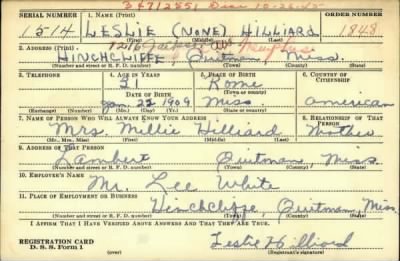 34712551 Disc 10-26-45
SERIAL NUMBER 1. NAME (Print) ORDER NUMBER
1514 LESLIE (NONE) HILLIARD 1848
(First) (Middle) (Last)
2. ADDRESS (Print) 1216 Jackson Ave Memphis
HINCHCLIFF Quitman, Miss.
(Number and street or R. F. D. number) (Town) (County) (State)
3. TELEPHONE 4. AGE IN YEARS 5. PLACE OF BIRTH 6. COUNTRY OF CITIZENSHIP
31 Rome
DATE OF BIRTH (Town or county)
Jan. 22 1909 Miss. American
(Exchange) (Number) (Mo.) (Day) (Yr.) (State or country)
7. NAME OF PERSON WHO WILL ALWAYS KNOW YOUR ADDRESS 8. RELATIONSHIP OF THAT PERSON
Mrs. Millie Hilliard Mother
(Mr., Mrs., Miss) (First) (Middle) (Last)
9. ADDRESS OF THAT PERSON
Lambert Quitman, Miss.
(Number and street or R. F. D. number) (Town) (County) (State)
10. EMPLOYER'S NAME
Mr. Lee White
11. PLACE OF EMPLOYMENT OR BUSINESS
Hinchcliffe, Quitman, Miss.
(Number and street or R. F. D. number) (Town) (County) (State)
I AFFIRM THAT I HAVE VERIFIED ABOVE ANSWERS AND THAT THEY ARE TRUE.
REGISTRATION CARD Leslie Hilliard
D. S. S. Form 1 (Registrant's signature)